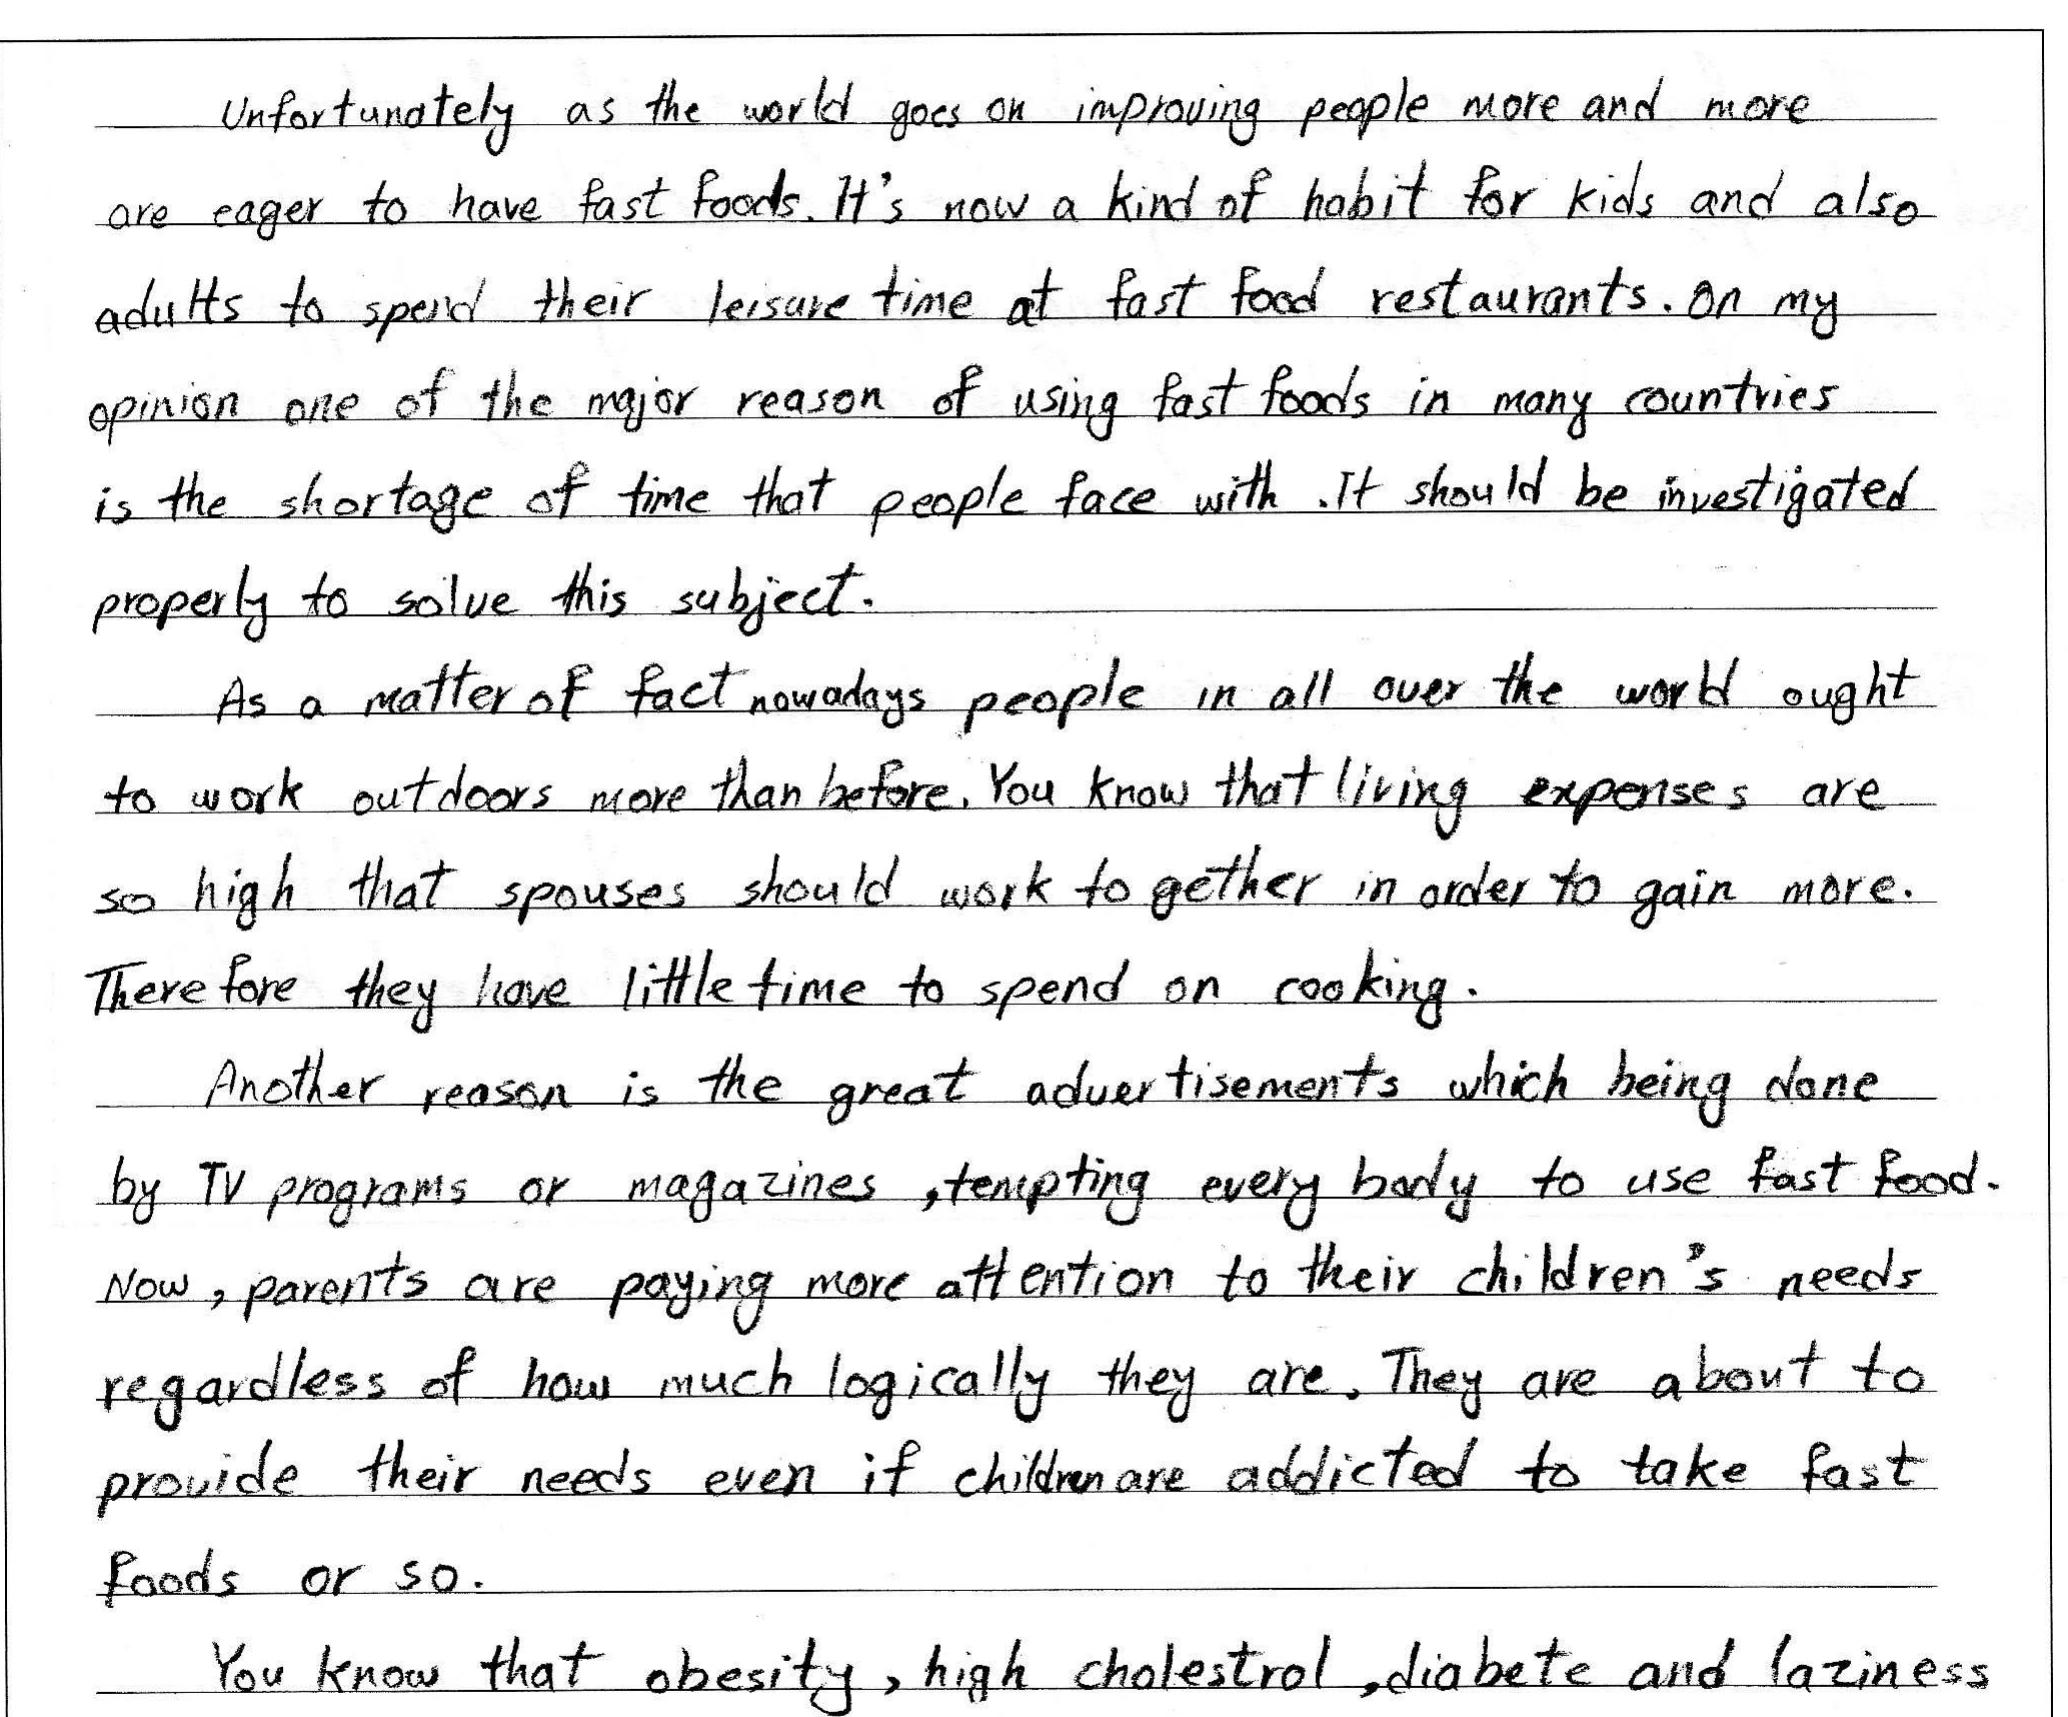 Unfortunately as the world goes on improving people more and more
are eager to have fast foods. It's now a kind of habit for kids and also
adults to spend their leisure time at fast food restaurants. On my
opinion one of the major reason of using fast foods in many countries
is the shortage of time that people face with. It should be investigated
properly to solve this subject.
As a matter of fact nowadays people in all over the world ought
to work outdoors more than before. You know that living expenses are
so high that spouses should work to gether in order to gain more.
Therefore they have little time to spend on cooking.
Another reason is the great advertisements which being done
by TV programs or magazines, tempting every body to use fast food.
Now, parents are paying more attention to their children's needs
regardless of how much logically they are. They are about to
provide their needs even if children are addicted to take fast
foods or so.
You know that obesity, high cholestrol, diabete and laziness